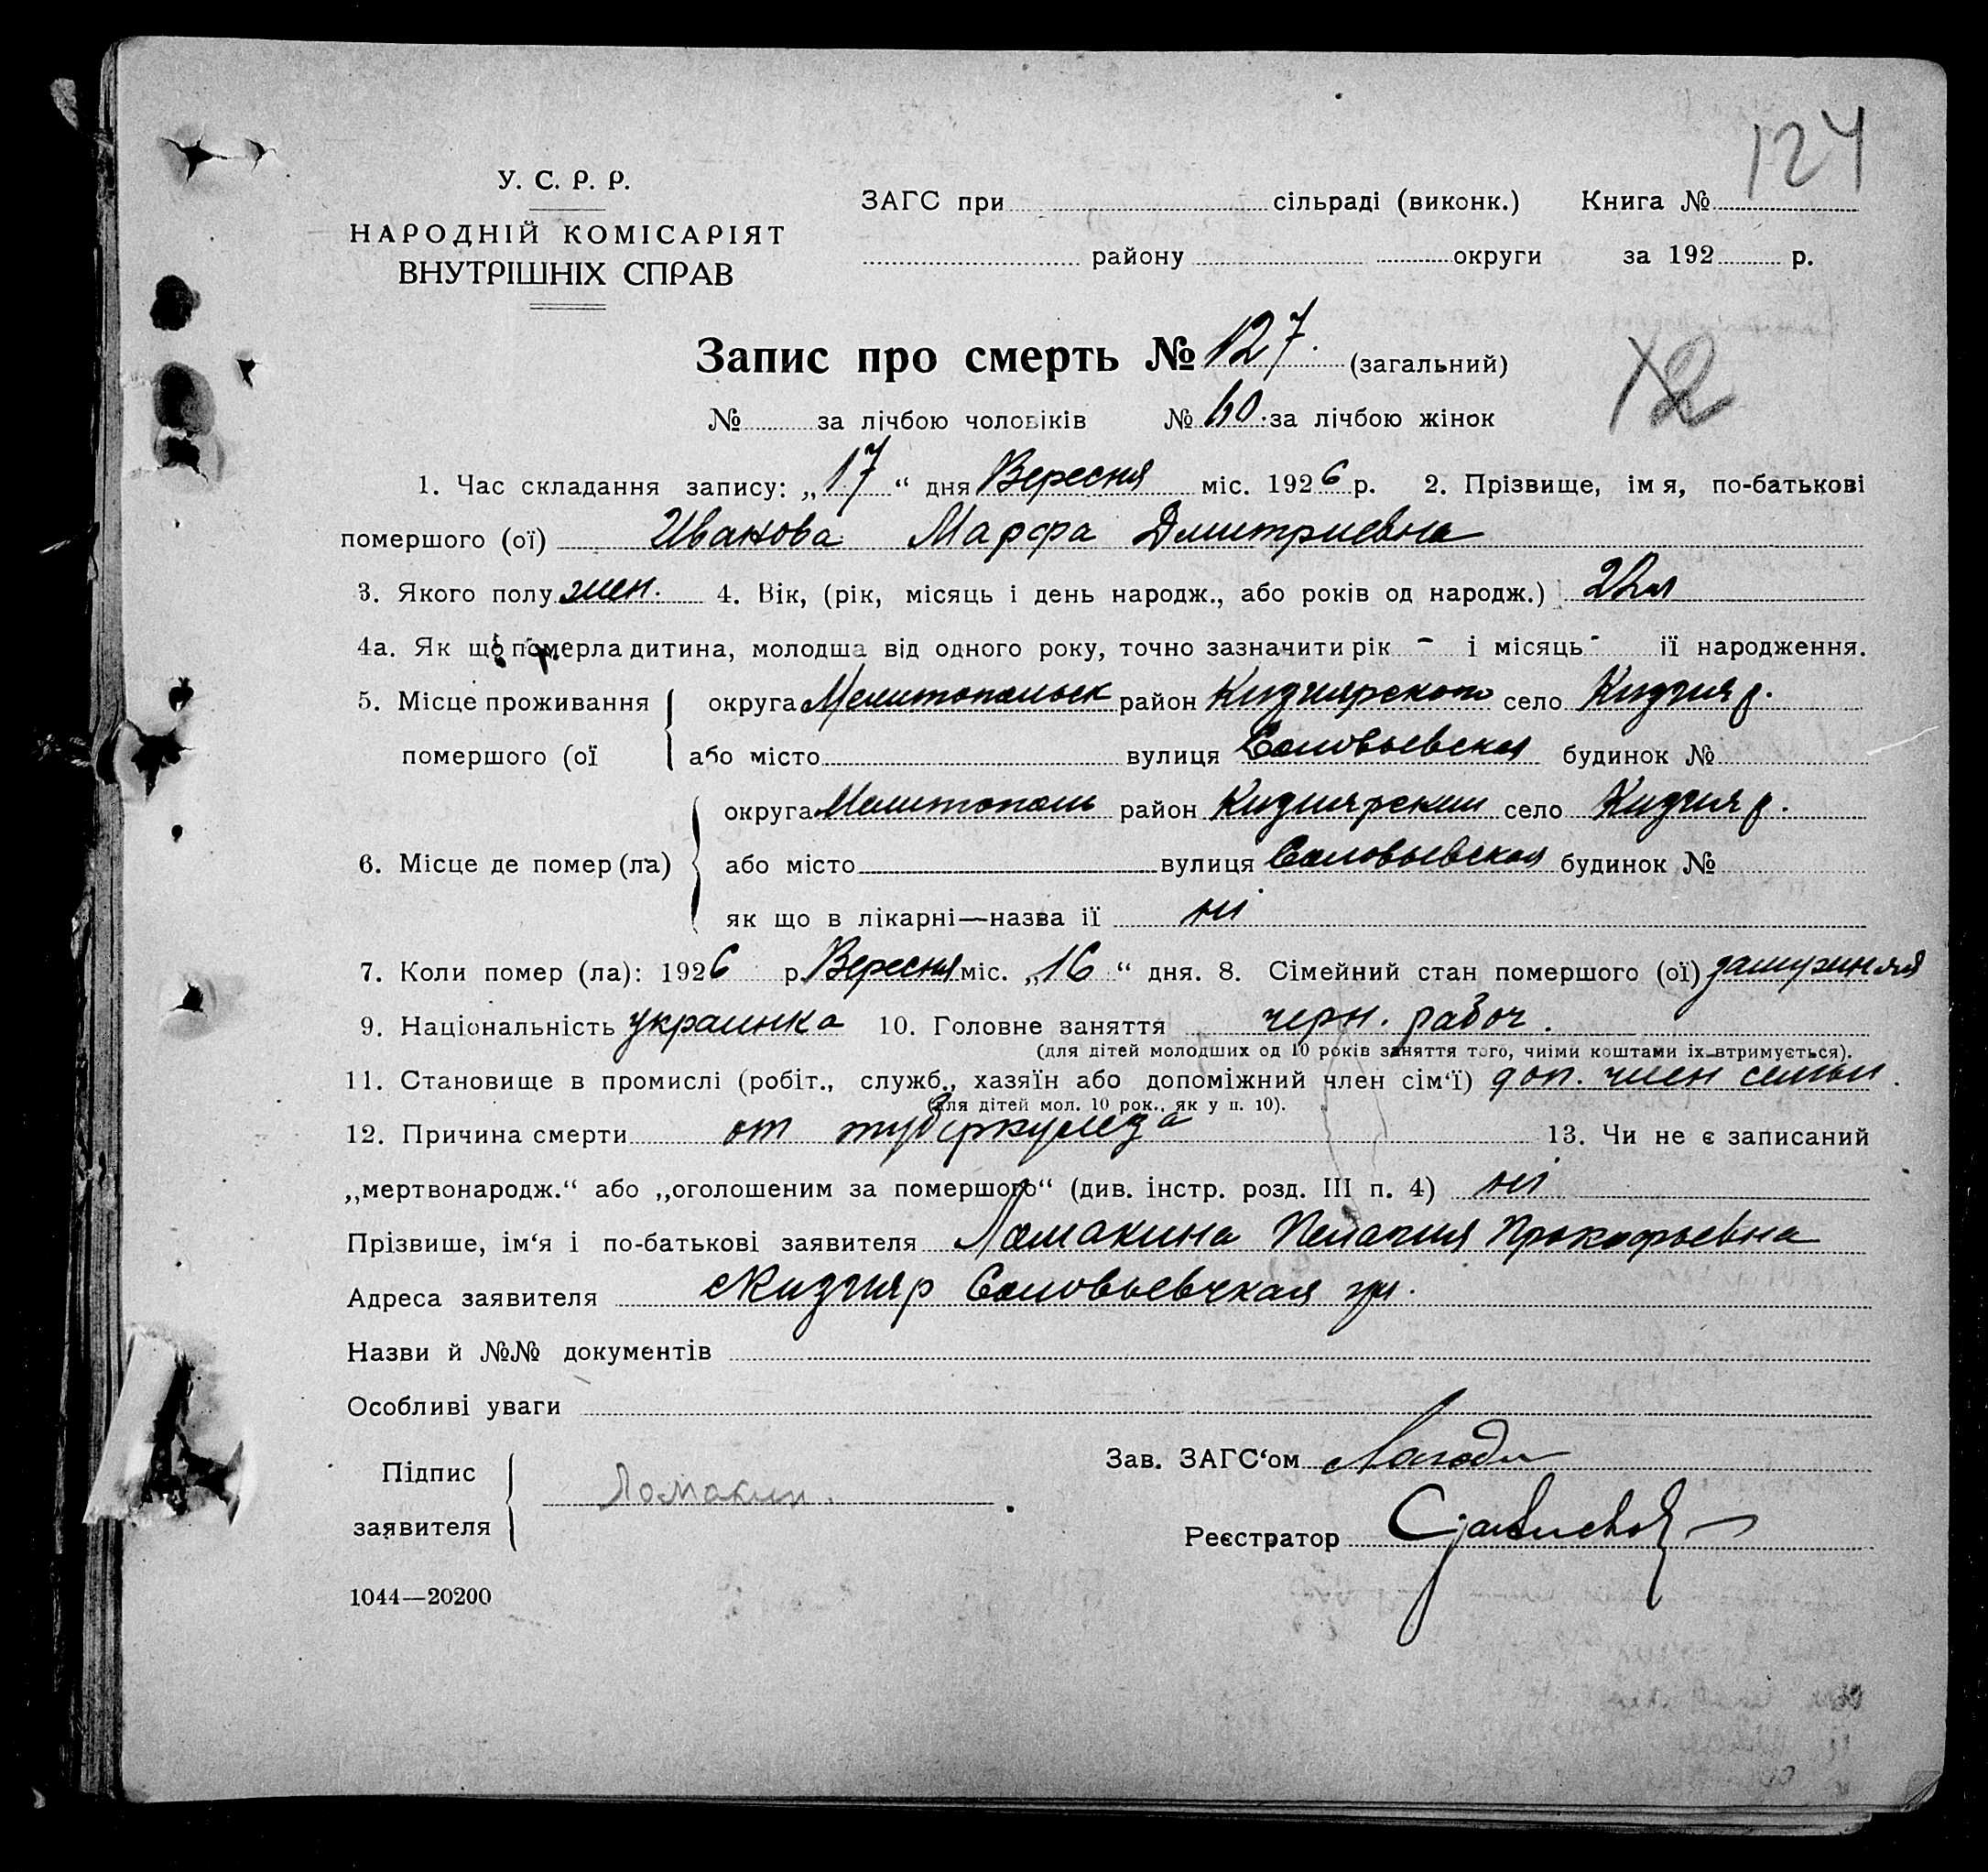 124
У. С. Р. Р.
НАРОДНІЙ КОМІСАРІЯТ
ВНУТРІШНІХ СПРАВ
ЗАГС при сільраді (виконк.) Книга №
району округи за 192 р.
Запис про смерть № 127. (загальний)
12
№ за лічбою чоловіків № 60. за лічбою жінок
1. Час складання запису: „17“ дня Вересня міс. 1926 р. 2. Прізвище, імя, по-батькові
помершого (ої) Иванова Марфа Дмитриевна
3. Якого полу жен. 4. Вік, (рік, місяць і день народж., або років од народж.) 22 л
4а. Як що померла дитина, молодша від одного року, точно зазначити рік - і місяць - ії народження.
5. Місце проживання округа Мелитопольск район Кизиярского село Кизияр.
помершого (ої або місто вулиця Соловьевская будинок №
округа Мелитополь район Кизиярский село Кизияр.
6. Місце де помер (ла) або місто вулиця Соловьевская будинок №
як що в лікарні—назва ії ні
7. Коли помер (ла): 1926 р. Вересня міс. „16“ дня. 8. Сімейний стан помершого (ої) замужняя
9. Національність украинка 10. Головне заняття черн. рабоч.
(для дітей молодших од 10 років заняття того, чиїми коштами іх втримується).
11. Становище в промислі (робіт., служб., хазяїн або допоміжний член сім‘ї) доп. член семьи.
(для дітей мол. 10 рок., як у п. 10).
12. Причина смерти от туберкулеза 13. Чи не є записаний
„мертвонародж.“ або „оголошеним за помершого“ (див. інстр. розд. III п. 4) ні
Прізвише, ім‘я і по-батькові заявителя Ломакина Пелагия Прокофьевна
Адреса заявителя с Кизияр Соловьевская ул.
Назви й №№ документів
Особливі уваги
Підпис
заявителя Ломакин.
Зав. ЗАГС‘ом
Реєстратор
1044—20200